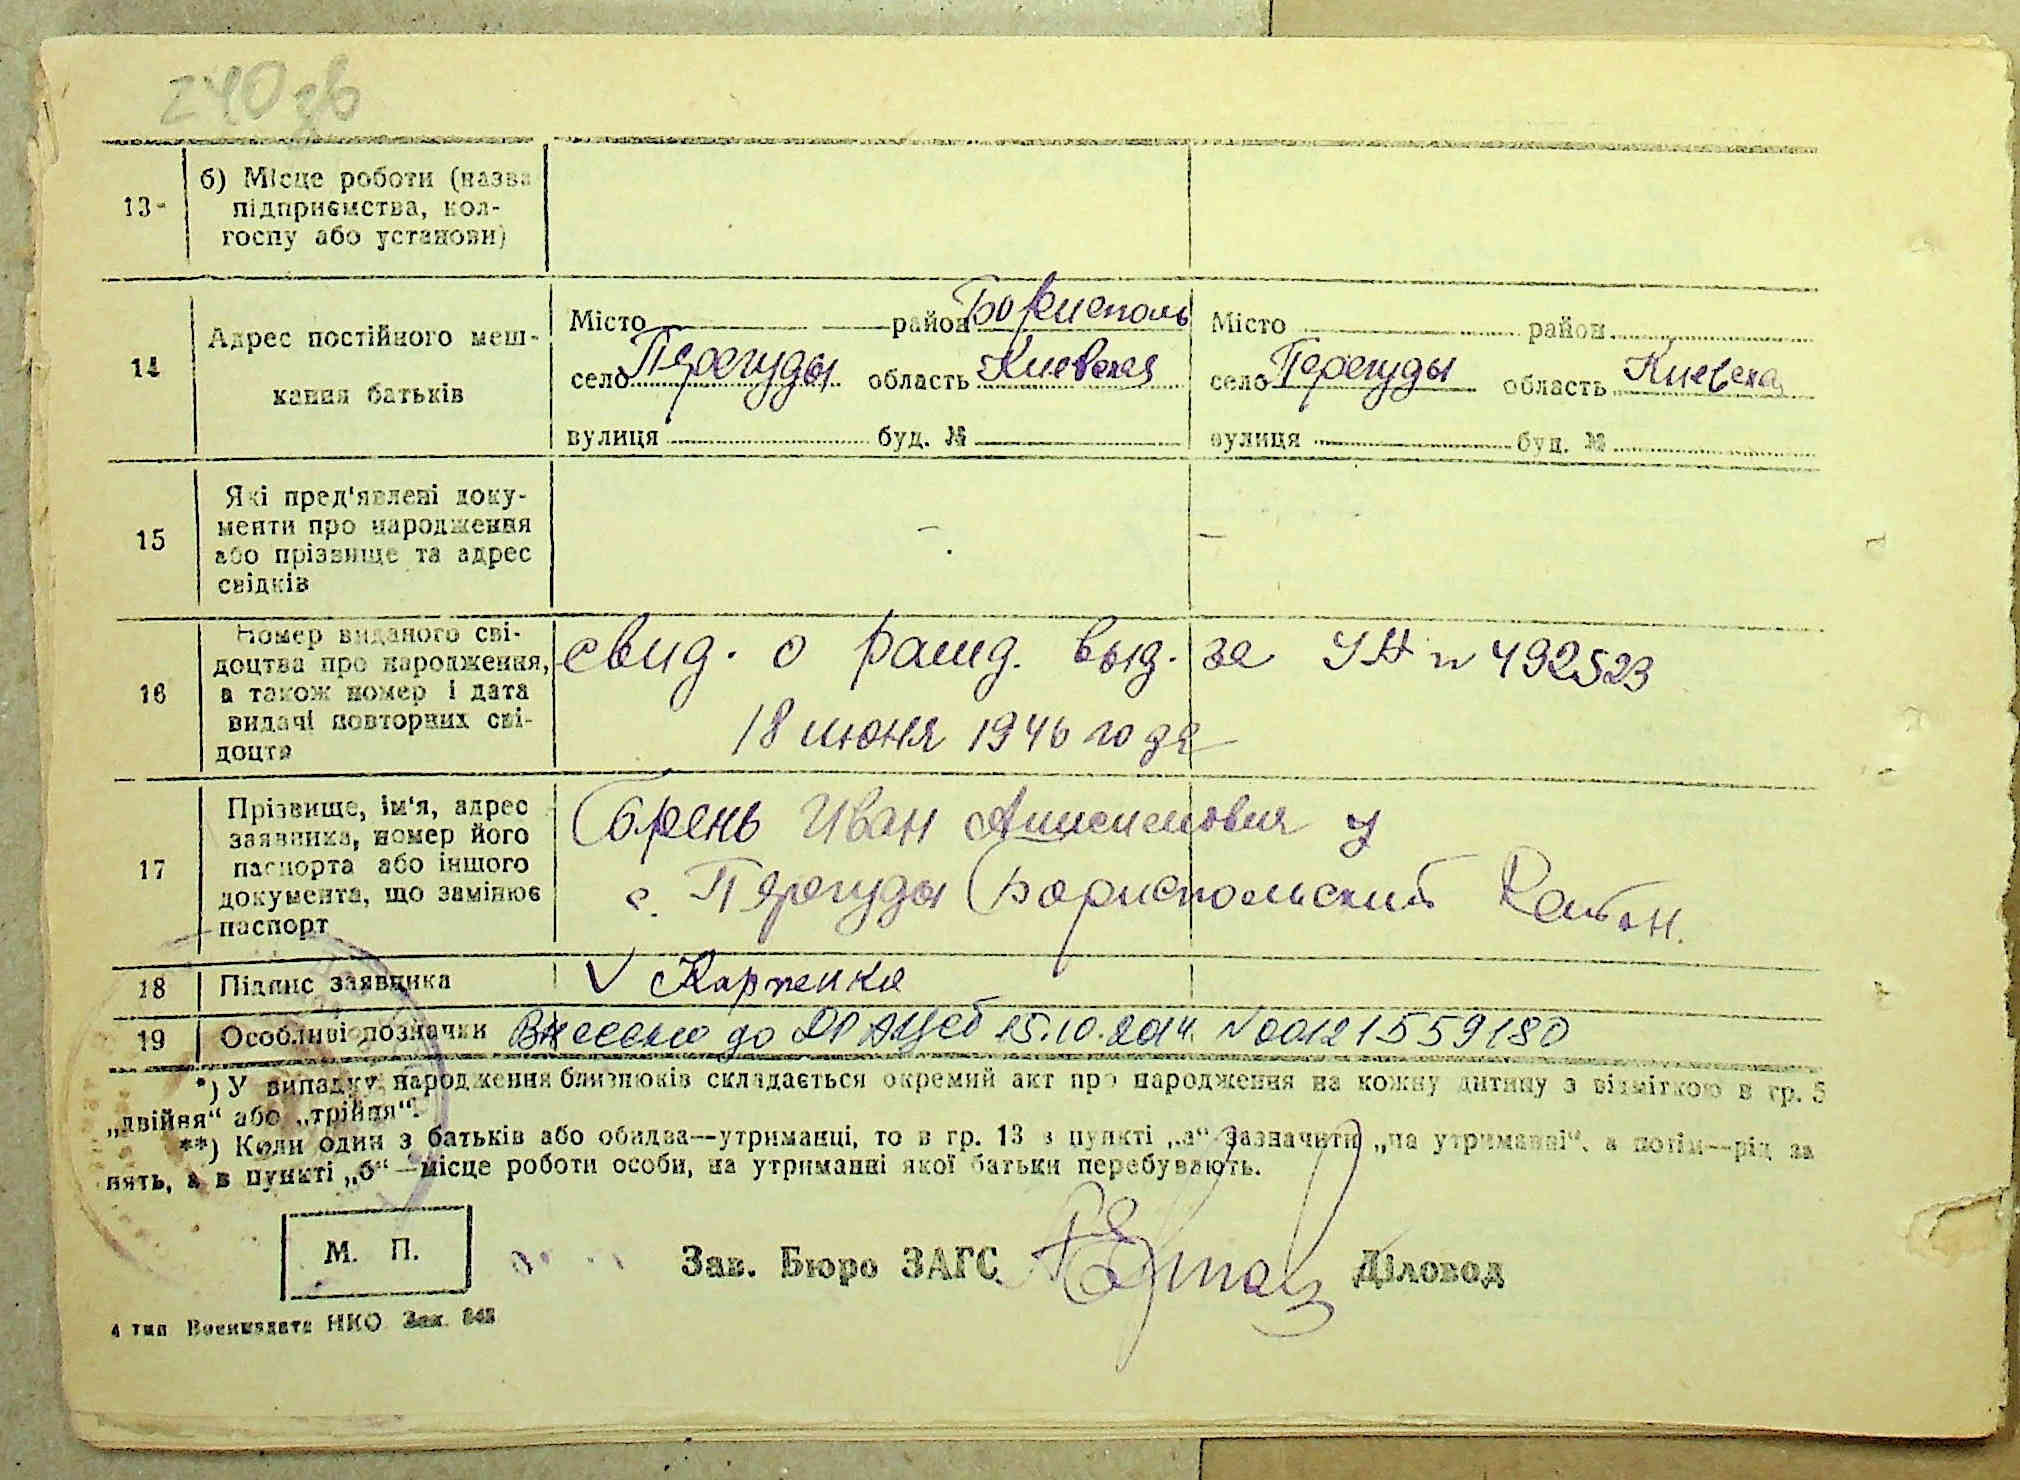 240 зв
13- б) Місце роботи (назва
підприємства, кол-
госпу або установи)
Місто район Борисполь Місто район
14 Адрес постійного меш-
село Перегуды область Киевская село Перегуды область Киевска
кання батьків
вулиця буд. № вулиця буд. №
Які пред'явлені доку-
менти про народження
15 або прізвище та адрес
свідків
Номер виданого сві-
доцтва про народження,
16 а також номер і дата
видачі повторних сві-
доцтв
свид. о рашд. выд. за УН n 492523
18 июня 1946 года
Прізвище, ім'я, адрес
заявника, номер його
17 паспорта або іншого
документа, що замінює
паспорт
Брень Иван у
с. Перегуды Бориспольский Район.
18 Підпис заявника V
19 Особливі позначки Внесено до 15.10.2014 N00121559180
*) У випадку народження близнюків складається окремий акт про народження на кожну дитину з відміткою в гр. 5
„двійня“ або „трійня“.
**) Коли один з батьків або обидва—утриманці, то в гр. 13 в пункті „а“ зазначити „на утриманні“, а потім—рід за
нять, а в пункті „б“—місце роботи особи, на утриманні якої батьки перебувають.
М. П.
Зав. Бюро ЗАГС Діловод
4 тип Воениздата НКО Зак. 848